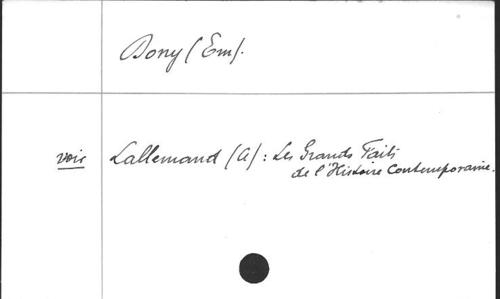 Bony (Em).
voir Lallemand (A) : Les Grands Faits
de l'Histoire Contemporaine.